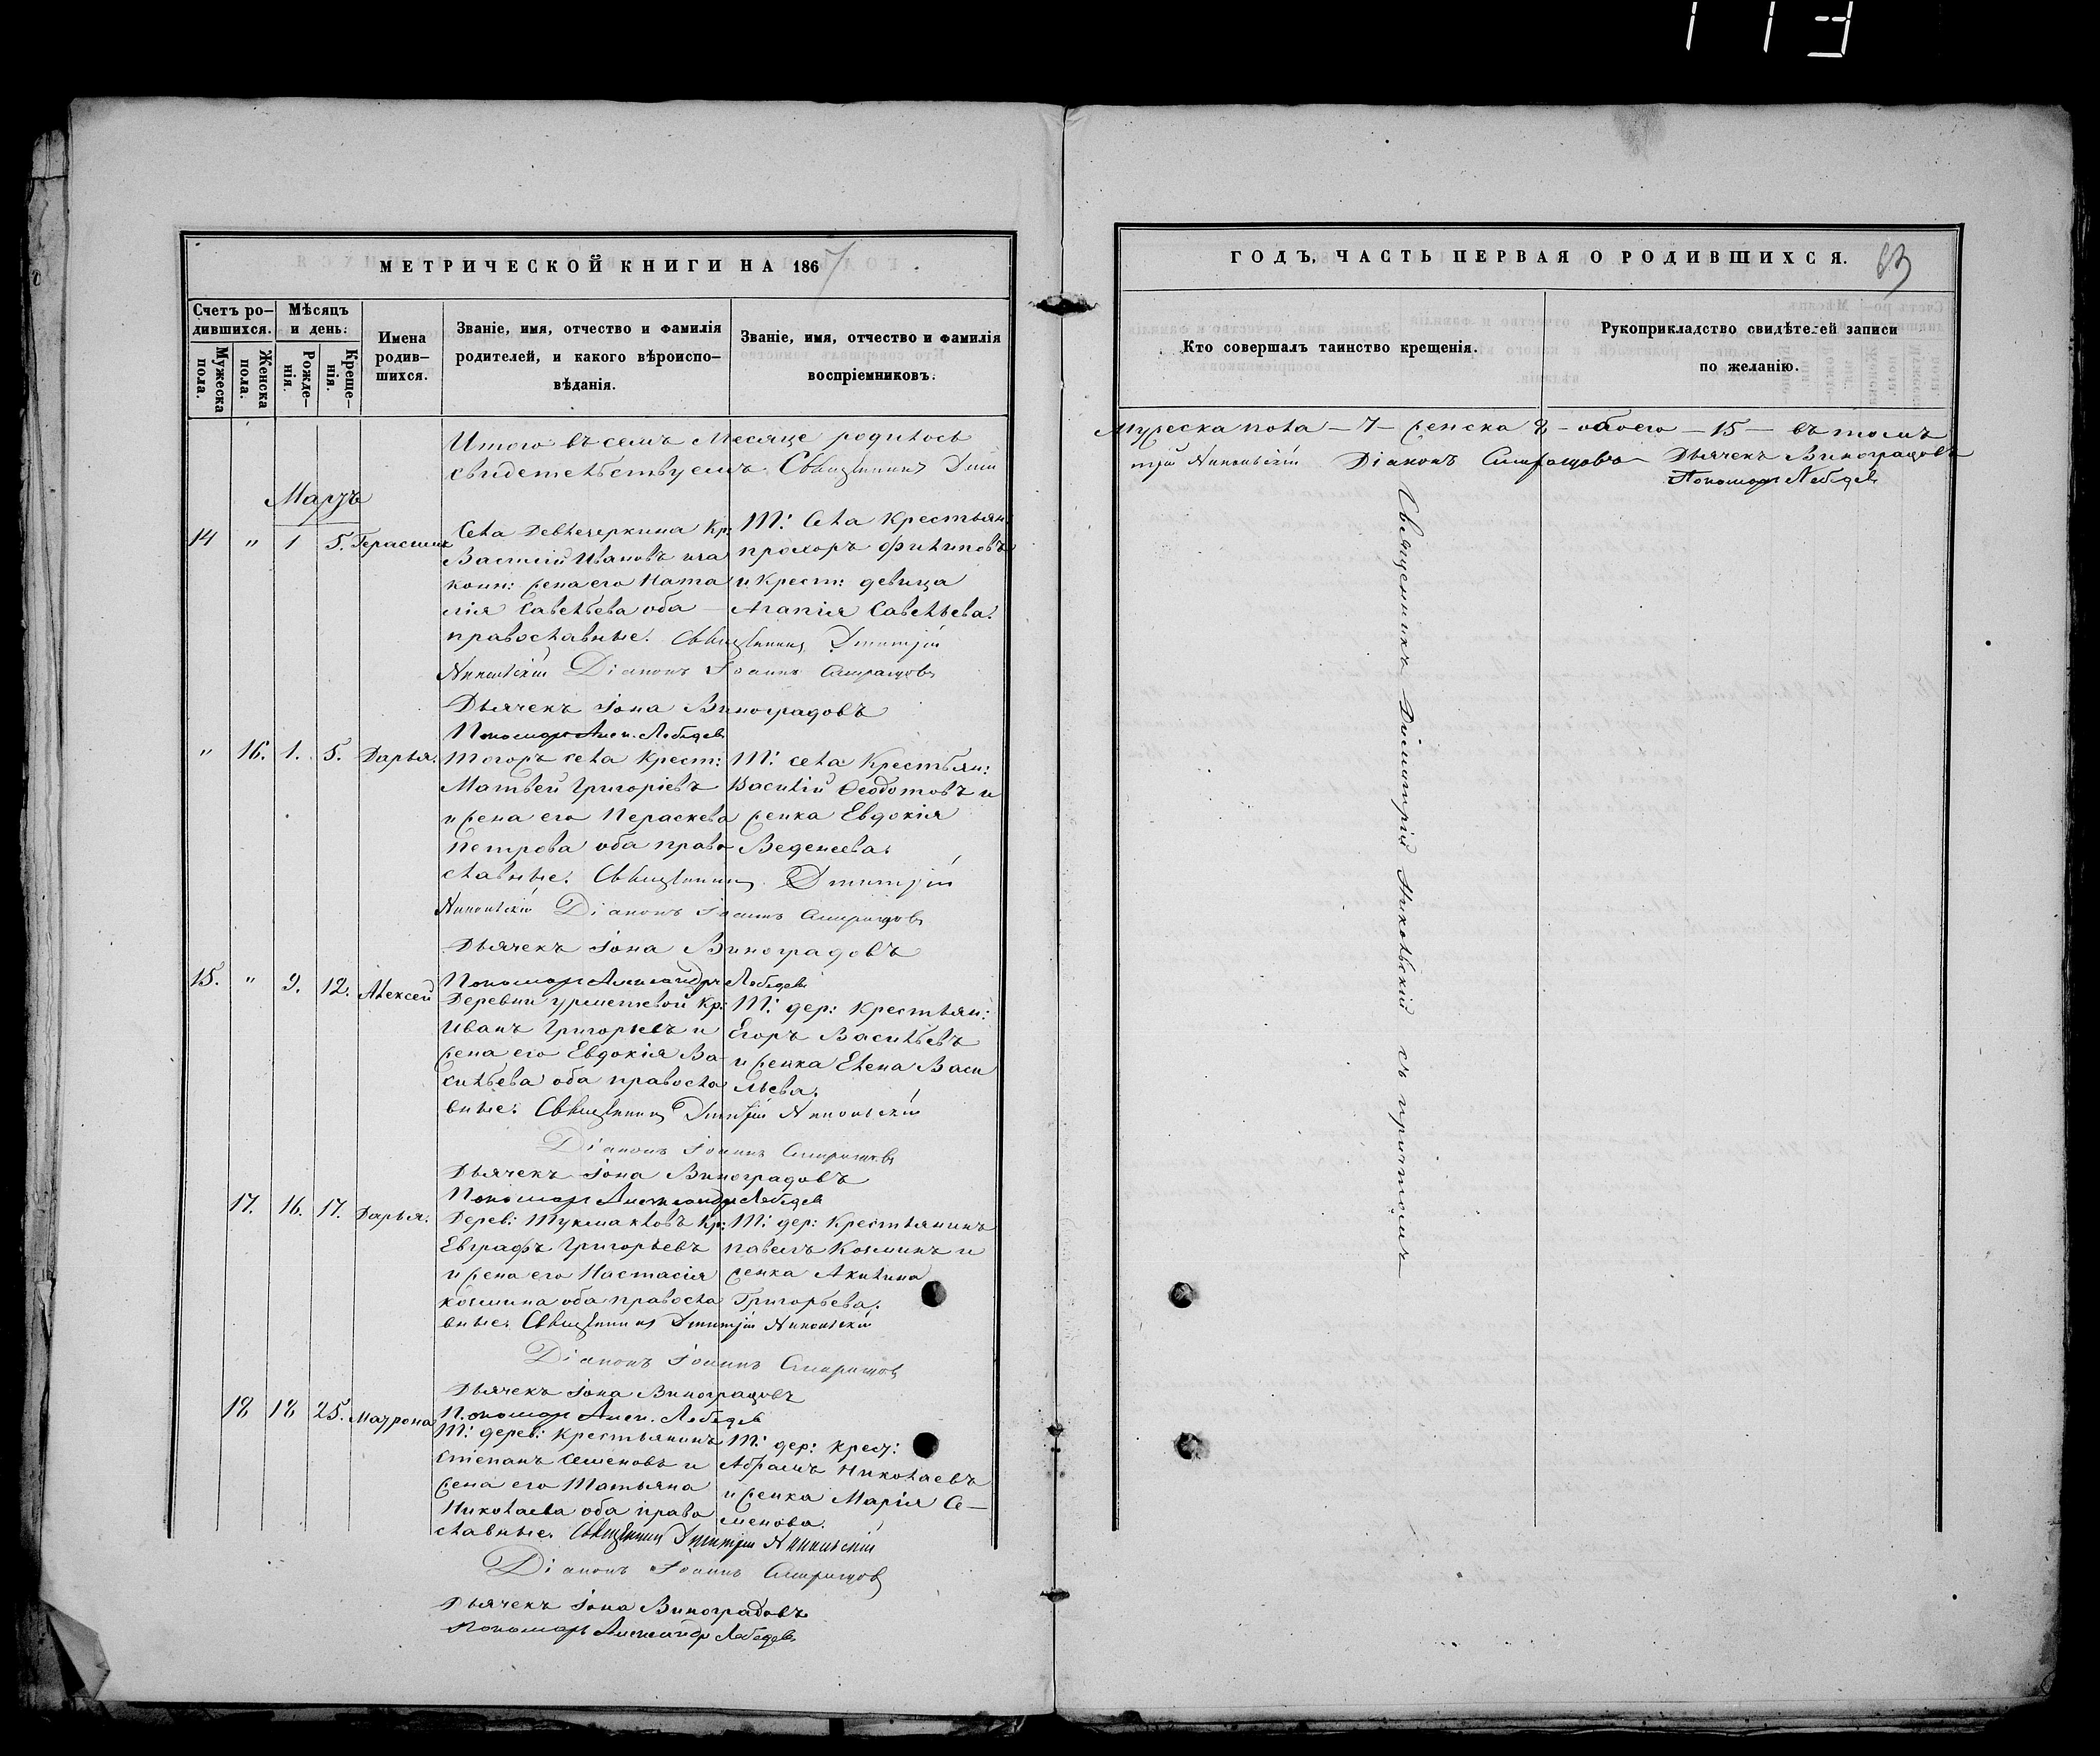 113
МЕТРИЧЕСКОЙ КНИГИ НА 1867
Счетъ ро-
дившихся.
Мужеска
пола.
Женска
пола.
Мѣсяцъ
и день:
Рожде-
нія.
Креще-
нія.
Имена
родив-
шихся.
Званіе, имя, отчество и фамилія
родителей, и какого вѣроиспо-
вѣданія.
Званіе, имя, отчество и фамилія
воспріемниковъ.
Итого въ семъ месяце родилось
свидетельствуемъ Священникъ Дми
Мартъ
14 " 1 5. Герасимъ
Села Девлечеркина Кр.
Василій Ивановъ и за
конн: жена его Ната
лія Савельева оба
православные. Священникъ Дмитрій
Никольскій Діаконъ Іоаннъ
Дьячекъ Іона Виноградовъ
Пономарь Алек. Лебедевъ
Т: Села Крестьян
прохоръ Филиповъ
и Крест: девица
Агапія Савельева.
" 16. 1. 5. Дарья.
Тогожъ села Крест:
Матвей Григоріевъ
и жена его Пераскева
Петрова оба право
славные. Священникъ Дмитрій
Никольскій Діаконъ Іоаннъ
Дьячекъ Іона Виноградовъ
Пономарь Александръ Лебедевъ
Т: села Крестьян:
Василій Феодотовъ и
женка Евдокія
Веденеева.
15. " 9. 12. Алексей
Деревни Кр:
Иванъ Григорьевъ и
жена его Евдокія Ва
сильева оба правосла
вные. Священникъ Дмитрій Никольскій
Діаконъ Іоаннъ
Дьячекъ Іона Виноградовъ
Пономарь Александръ Лебедевъ
Т: дер: Крестьян:
Егоръ Васильевъ
и женка Елена Васи
льева.
17. 16. 17. Дарья.
Дерев: Тукмакловъ Кр:
Евграфъ Григорьевъ
и жена его Настасія
козмина оба правосла
вные. Священникъ Дмитрій Никольскій
Діаконъ Іоаннъ
Дьячекъ Іона Виноградовъ
Пономарь Алек. Лебедевъ
Т: дер: Крестьянинъ
павелъ Козминъ и
женка Акилина
Григорьева.
18 18 25. Матрона
Т: дерев: Крестьянинъ
Степанъ Семеновъ и
жена его Татьяна
Николаева оба право
славные. Священникъ Дмитрій Никольскій
Діаконъ Іоаннъ
Дьячекъ Іона Виноградовъ
Пономарь Александръ Лебедевъ
Т: дер: Крест:
Абрамъ Николаевъ
и женка Марія Се-
менова.
ГОДЪ, ЧАСТЬ ПЕРВАЯ О РОДИВШИХСЯ.
63
Кто совершалъ таинство крещенія.
Рукоприкладство свидѣтелей записи
по желанію.
Мужеска пола – 7 – женска 8 – обоего – 15 – въ томъ
трій Никольскій Діаконъ Дьячекъ Виноградовъ
Пономарь Лебедевъ
Священникъ Діомитрій Никольскій съ причтомъ